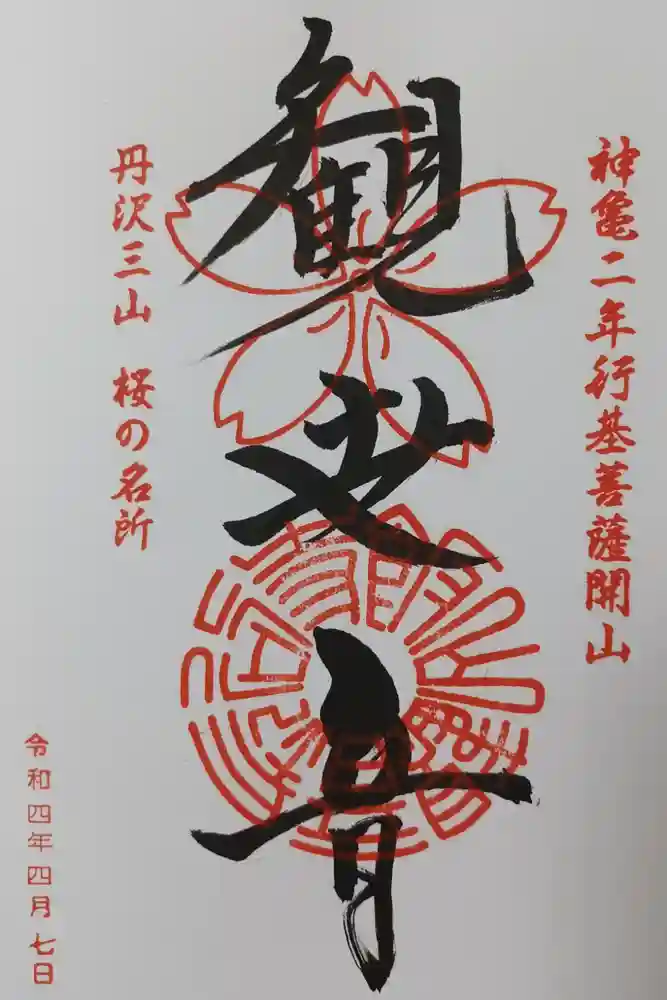 神亀二年行基菩薩開山
観世音
丹沢三山 桜の名所
令和四年四月七日